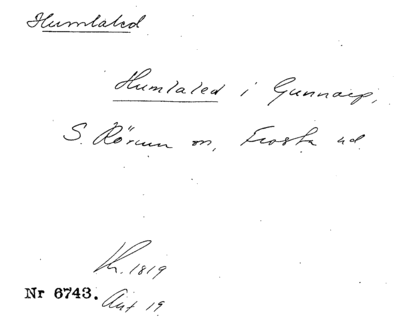 Humlaled
Humlaled i Gunnarp,
S. Rörum sn, Frosta hd
Kr. 1819
Nr 6743. Ant 19